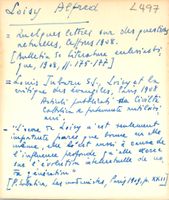 Loisy Alfred L497
= Quelques lettres sur des questions
actuelles, Ceffonds 1908.
[Bulletin de littérature ecclésiasti
que, 1908, pp. 175-177]
= Louis S.J., Loisy et la
critique des évangiles, Paris 1908
Articoli pubblicati Civiltà
Cattolica
= "L'œuvre de Loisy n'est seulement
importante parce que bonne en elle
même, elle l'est aussi à cause de
l'influence profonde qu'elle exerce
sur l'évolution intellectuelle de ma
génération"
[Les modernistes, Paris 1909, p. XLII]